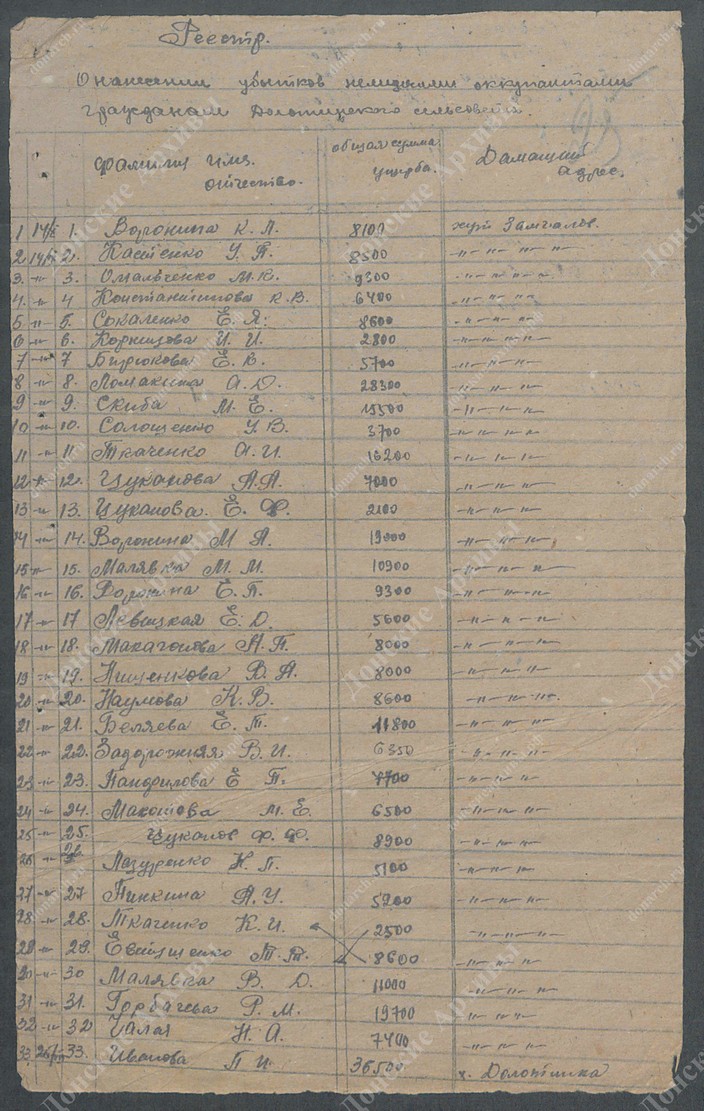 Реестр.
О нанесении убытков немецкими оккупантами
гражданам Долотинского сельсовета.
фамилия имя отчество. общая сумма ущерба. Дамашний адрес.
1 1. Воронина К. Л. 8100 хут. Замчалов.
2. 2. Костенко У. П. 8500 -"- "- "- "-
3. -"- 3. Омельченко М. К. 9300 -"- "- "- "-
4. -"- 4 Константинова К. В. 6400 -"- "- "- "-
5 -"- 5. Сокаленко Е. Я. 8600 -"- "- "-
6 -"- 6. Корнецова И. И. 2800 -"- "- "- "-
7 -"- 7 Бирюкова Е. К. 5700 -"- "- "-
8 -"- 8. Ломакина А. Д. 28300 -"- "- "- "-
9 -"- 9. Скиба М. Е. 15500 -"- "- "-
10 -"- 10. Солощенко У. В. 3700 -"- "- "- "-
11 -"- 11. Ткаченко А. И. 16200 -"- "- "- "-
12 -"- 12. Цуканова А. А. 7000 -"- "- "-
13 -"- 13. Цуканова. Е. Ф. 2100 -"- "- "-
14 -"- 14. Воронина М А. 19000 -"- "- "- "-
15 -"- 15. Малявка М. М. 10900 -"- "- "- "-
16 -"- 16. Воронина Е. П. 9300 -"- "- "-
17 -"- 17 Левицкая Е. Д. 5600 -"- "- "- "-
18 -"- 18. Макагонова А. П. 8000 -"- "- "- "-
19 -"- 19. Пищенкова В. А. 8000 -"- "- "-
20 -"- 20. Наумова К. В. 8600 -"- "- "-
21 -"- 21. Беляева Е. Т. 11800 -"- "- "- "-
22 -"- 22. Задорожняя В. И. 6350 -"- "- "-
23 -"- 23. Панфилова Е П. 7700 -"- "- "-
24 -"- 24. Махотова М. Е. 6500 -"- "- "-
25 -"- 25. Цуканов Ф. Ф. 8900 -"- "- "-
26 -"- 26. Лазуренко Н. П. 5100 -"- "- "-
27 -"- 27 Пинкина А. У. 5200 -"- "- "-
28. -"- 28. Ткаченко К. И. 2500 -"- "- "-
29 -"- 29. Евтущенко Т. Т. 8600 -"- "- "-
30 -"- 30 Малявка В. Д. 11000 -"- "- "-
31 -"- 31. Горбачева Р. М. 19700 -"- "- "-
32 -"- 32 Чалая Н. А. 7400 -"- "- "-
33 33. Иванова П И. 36500 х. Долотинка
Донские Архивы
donarch.ru